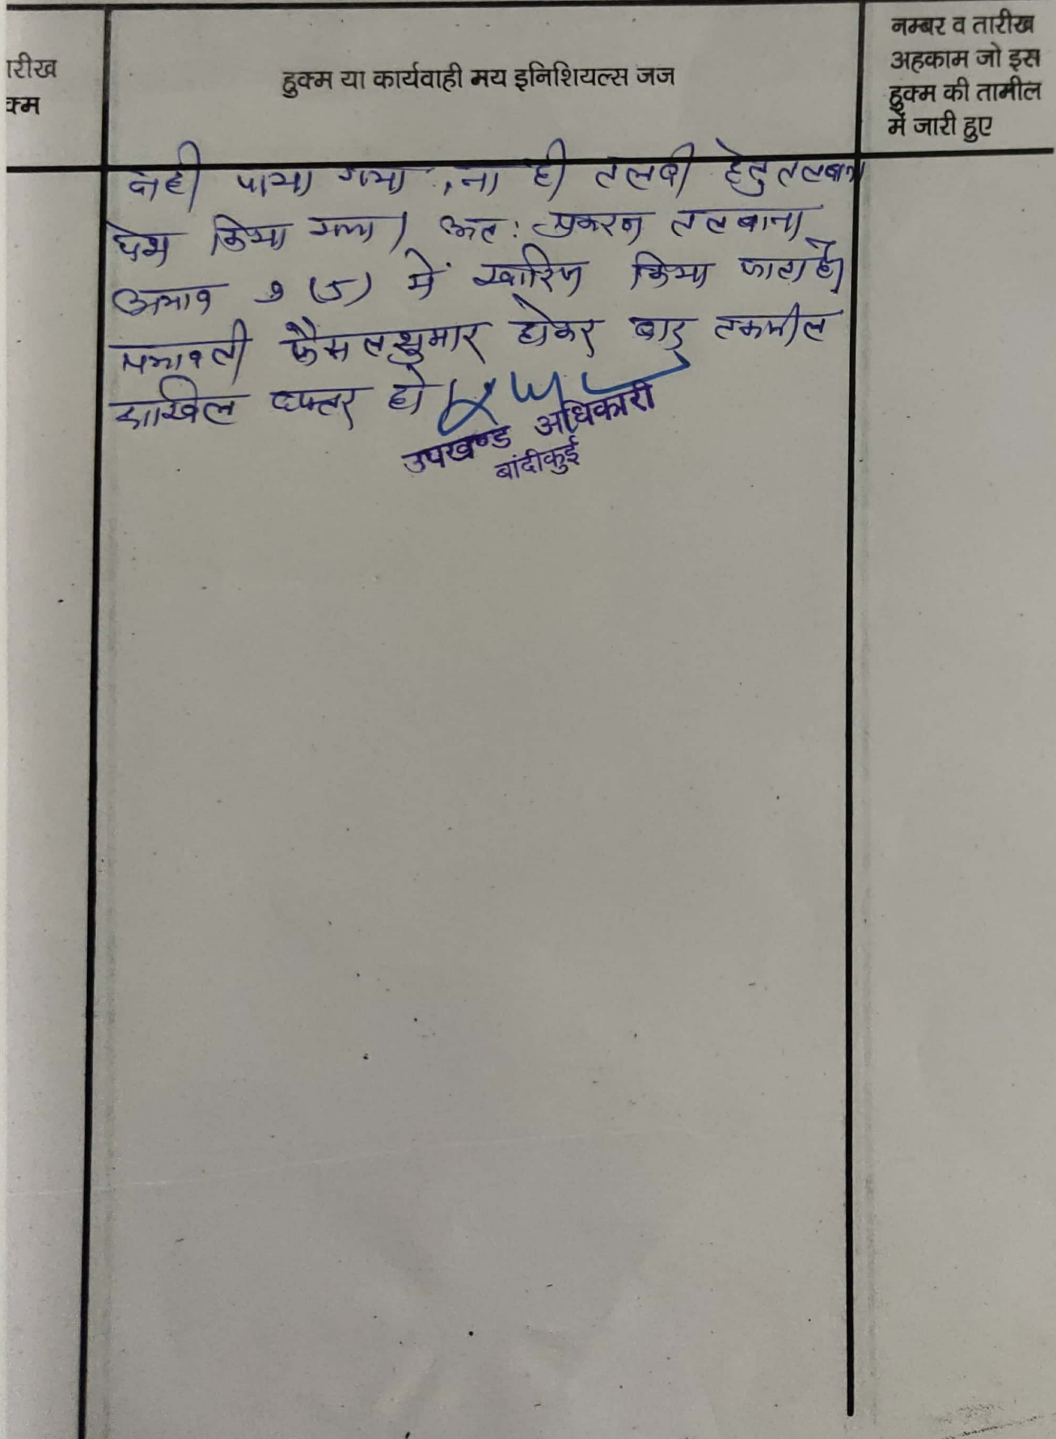 तारीख
हुक्म
हुक्म या कार्यवाही मय इनिशियल्स जज
नम्बर व तारीख
अहकाम जो इस
हुक्म की तामील
में जारी हुए
नही पाया गया, ना ही तलबी हेतु तलबाना
पेश किया गया। अत: प्रकरण तलबाना
अभाव 9 (5) में खारिज किया जाता है।
पत्रावली फैसलशुमार होकर बाद तकमील
दाखिल दफ्तर हो।
उपखण्ड अधिकारी
बांदीकुई